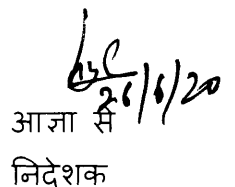 26/6/20
आज्ञा से
निदेशक